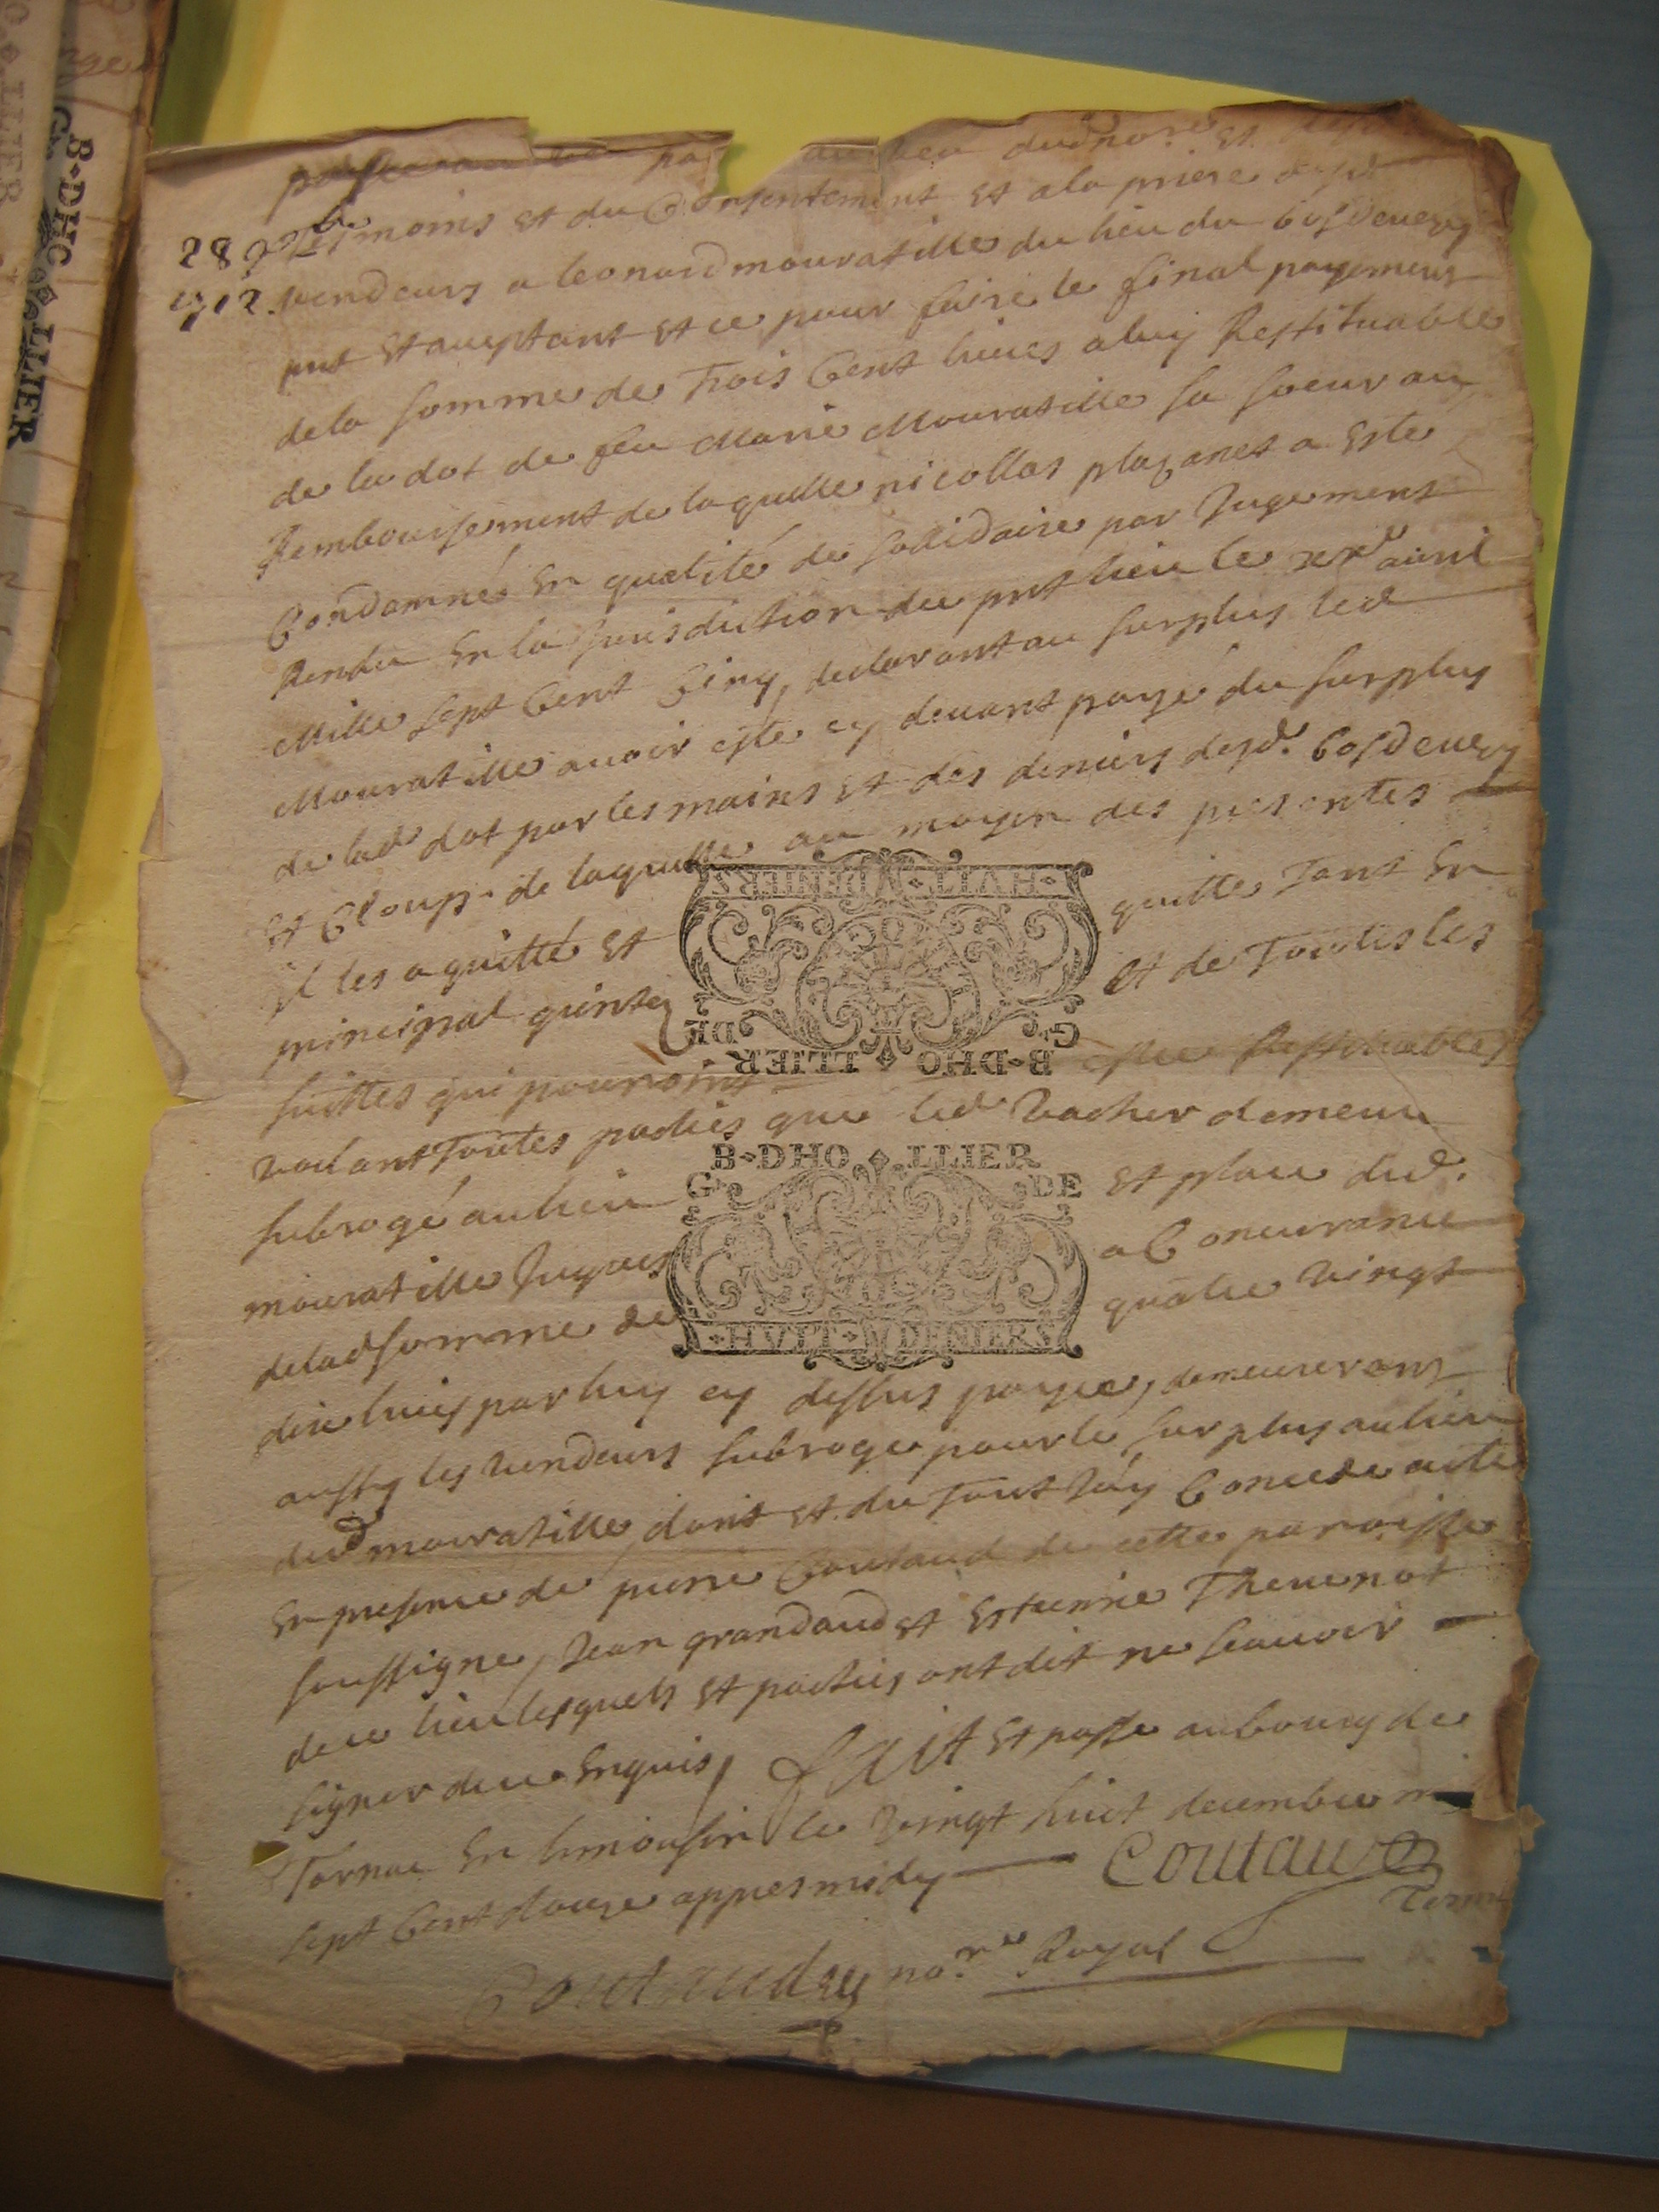 au lieu dud no.re et
tesmoins et du Consentement et a la priere desd
28 xbre
1712.
vendeurs a leonard mouratille du lieu du bosdeveix
pnt et acceptant et ce pour faire le final payement
de la somme de Trois Cent livres a luy Restituable
de la dot de feu Marie Mouratille sa soeur au
Rembourssement de laquelle nicollas plazanet a este
Condamné En qualité de sollidaire par Jugement
Rendu En la Jurisdiction du pnt lieu le avril
Mille sept Cent Cinq, declarant au surplus led
Mouratille avoir este cy devant payé du surplus
de lad dot par les mains et des deniers desd. bosdeveix
et Cloup. de laquelle au moyen des presentes
il les a quitté et quitte Tant En
principal quinter et de Toutes les
suittes qui pourroint estre Restituables
voulant Toutes parties que led vacher demeure
subrogé au lieu et place dud.
mouratille Jusques a Concurance
de lad somme de quatre vingt
dix livres par luy cy dessus payée, demeureront
aussy les vendeurs subroge pour le surplus au lieu
dud mouratille, dont et du Tout J'ay Concede acte
En presence de pierre Coutaud de cette paroisse
soussigne, Jean grandaud et Estienne Thevenot
de ce lieu lesquels et parties ont dit ne scavoir
signer de ce Enquis, fait et passe au bourg de
Tarnac En limousin le vingt huit decembre
sept Cent douze appres midy Coutaud
no.re Royal
B·DHO LLIER
G DE
·HVIT DENIERS·
B·DHO LLIER
G DE
·HVIT DENIERS·
B·DHO LLIER
LLIER